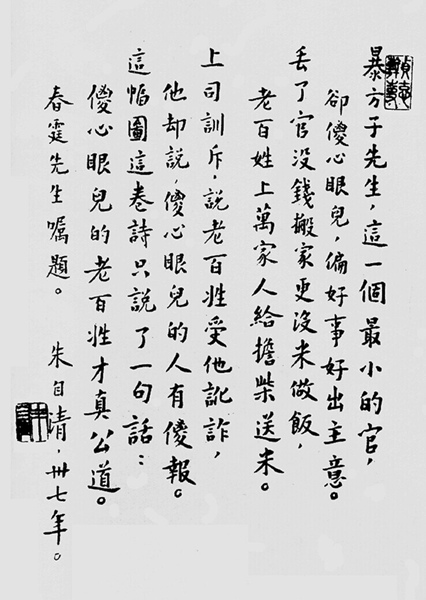 暴方子先生,這一個最小的官,
卻傻心眼兒,偏好事好出主意。
丟了官没錢搬家更没米做飯,
老百姓上萬家人給擔柴送米。
上司訓斥,說老百姓受他訛詐,
他却說,傻心眼兒的人有傻報。
這幅圖這卷詩只說了一句話:
傻心眼兒的老百姓才真公道。
春霆先生囑題。 朱自清,卅七年。